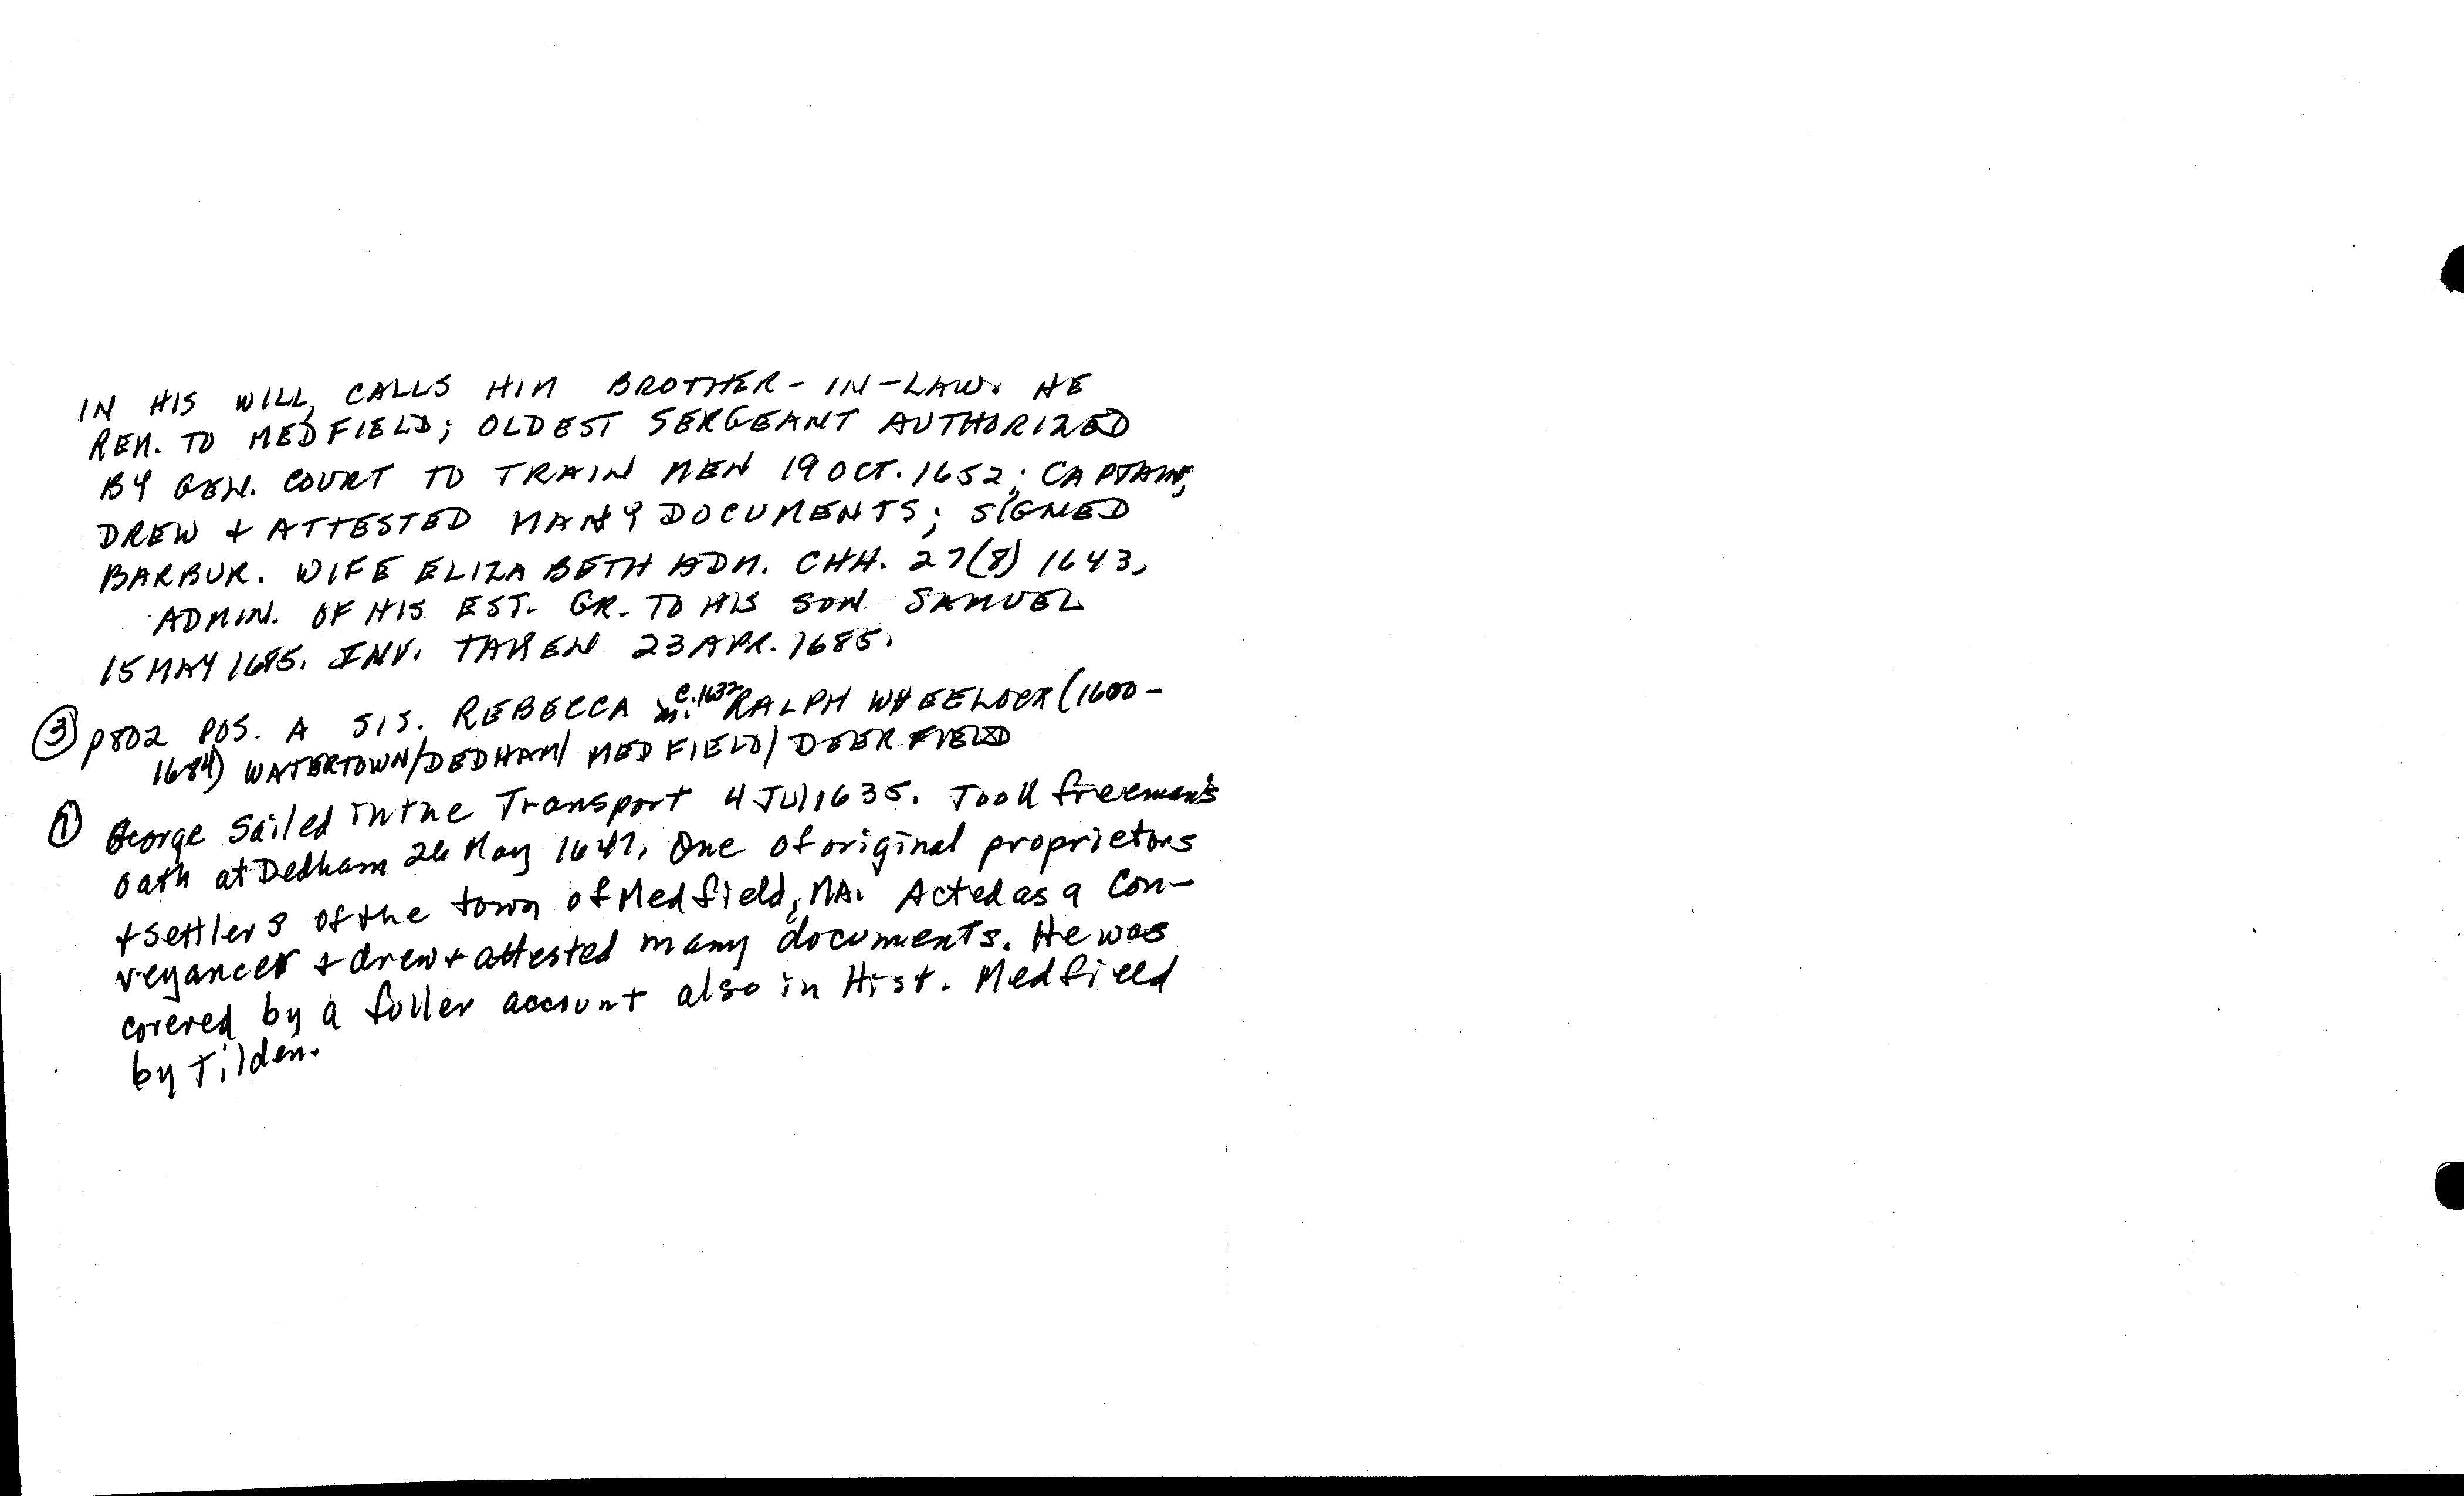 IN HIS WILL, CALLS HIM BROTHER-IN-LAW. HE
REM. TO MEDFIELD; OLDEST SERGEANT AUTHORIZED
BY GEN. COURT TO TRAIN MEN 19 OCT. 1652; CAPTAIN;
DREW + ATTESTED MANY DOCUMENTS; SIGNED
BARBUR. WIFE ELIZABETH ADM. CHH. 27(8) 1643,
ADMIN. OF HIS EST. GR. TO HIS SON SAMUEL
15 MAY 1685. INV. TAKEN 23 APR. 1685.
③ p802 POS. A SIS. REBECCA m. c.1632 RALPH WHEELOCK (1600-
1684) WATERTOWN/DEDHAM/MEDFIELD/DEERFIELD
① George sailed in the Transport 4 Jul 1635. Took freeman's
oath at Dedham 26 May 1647. One of original proprietors
+ settlers of the town of Medfield, MA. Acted as a con-
veyancer + drew + attested many documents. He was
covered by a fuller account also in Hist. Medfield
by Tilden.